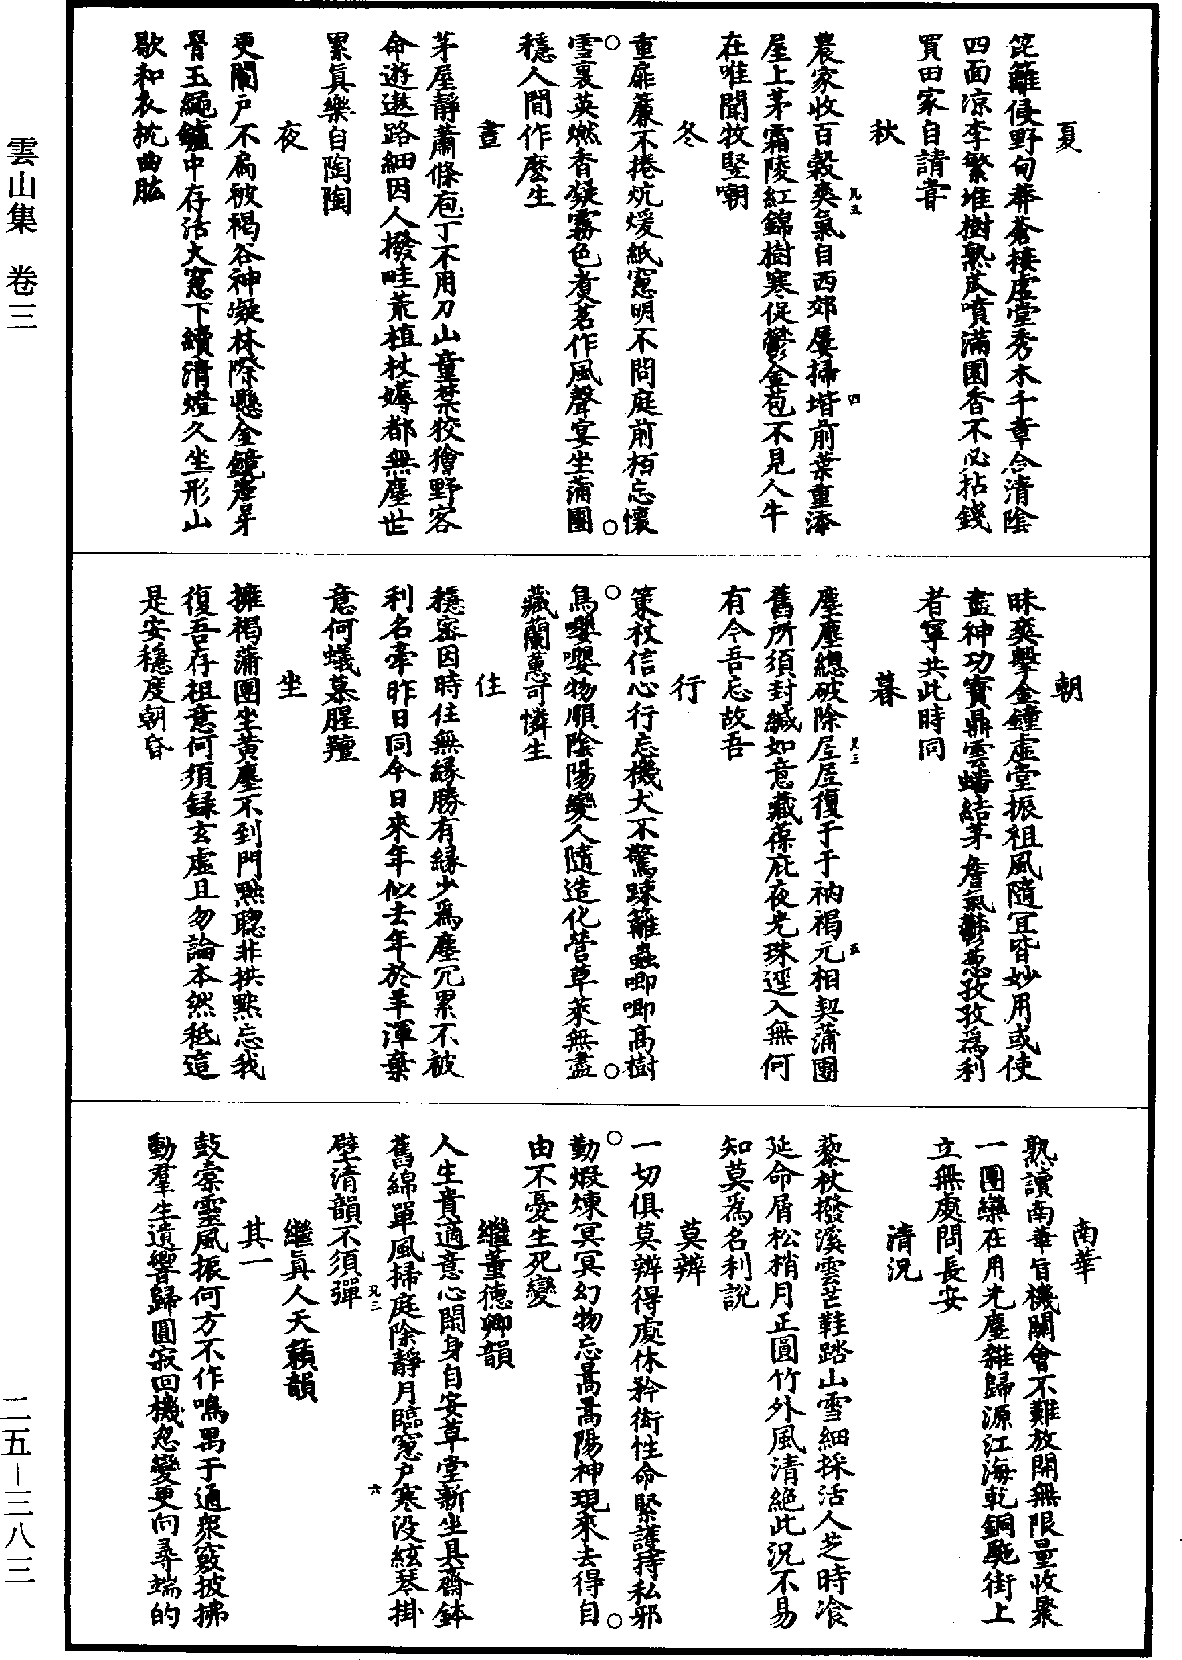 雲山集　卷三
夏
笓籬侵野甸莽蒼接虛堂秀木千章合清陰
四面凉李繁堆樹熟瓜噴滿園香不必拈錢
買田家自請甞
秋
農家收百穀爽氣自西郊屢掃堦前葉重添
屋上茅霜陵紅錦樹寒促鬱金苞不見人牛
在唯聞牧竪嘲
冬
重扉簾不捲炕煖紙窻明不問庭前栢忘懷
雪裏英燃香凝霧色煮茗作風聲宴坐蒲團
穩人間作麽生
晝
茅屋靜蕭條庖丁不用刀山童禁狡獪野客
命遊遨路細因人撥畦荒植杖薅都無塵世
累眞樂自陶陶
夜
更闌户不扃被褐谷神凝林際懸金鏡簷牙
骨玉繩鑪中存活火窻下續清燈久坐形山
歇和衣枕曲肱
朝
昧爽擊金鐘虛堂振祖風隨宜皆妙用或使
盡神功寶鼎雲蟠結茅詹氣鬱葱孜孜爲利
者寧共此時同
暮
塵塵總破除𡱈𡱈復于于衲褐元相契蒲團
舊所須封緘如意藏葆庇夜光珠逕入無何
有今吾忘故吾
行
策杖信心行忘機犬不驚踈籬蟲唧唧高樹
鳥嚶嚶物順陰陽變人隨造化營草萊無盡
藏蘭蕙可憐生
住
穩審因時住無緣勝有緣少爲塵冗累不被
利名牽昨日同今日來年似去年於羊渾棄
意何蟻慕腥羶
坐
擁褐蒲團坐黃塵不到門黜聰非拱默忘我
復吾存祖意何須録玄虛且勿論本然秪這
是安穩度朝昏
南華
熟讀南華旨機關會不難放開無限量收聚
一團欒在用光塵雜歸源江海乾銅駞街上
立無處問長安
清況
藜杖撥溪雲芒鞋踏山雪細採活人芝時飡
延命屑松梢月正圓竹外風清絶此況不易
知莫爲名利說
莫辨
一切俱莫辨得處休矜衒性命緊護持私邪
勤煆煉冥冥幻物忘暠暠陽神現來去得自
由不憂生死變
繼董德卿韻
人生貴適意心閑身自安草堂新坐具齋鉢
舊綿單風掃庭除靜月臨窻户寒没絃琴掛
壁清韻不須彈
繼眞人天籟韻
其一
鼓橐靈風振何方不作鳴禺于通衆竅披拂
動羣生遺響歸圓寂回機忽變更向尋端的
二五－三八三